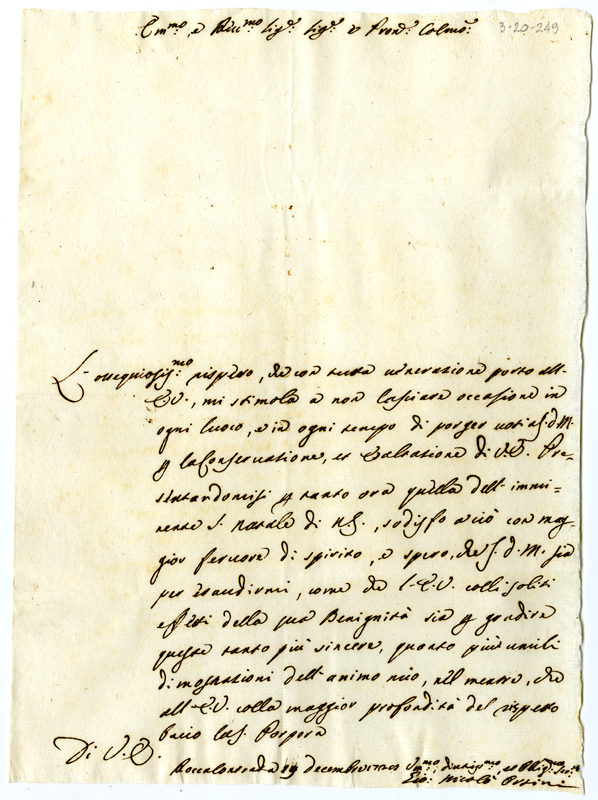 Em.mo, e Rev.mo Sig.r Sig.r e Pron. Colmo:
3-20-249
L'ossequiosis.mo rispetto, che con tutta venerazione porto all'
E.V., mi stimola a non lasciare occasione in
ogni luoco, e in ogni tempo di porger voti a S.d.M.
p la Conservatione, et Esaltatione di V.E. Pre=
sentandomisi p tanto ora quella dell'immi=
nente S. Natale di N.S., sodisfo a ciò con mag-
gior fervore di spirito, e spero, che S.d.M. sia
per esaudirmi, come che l'E.V. colli soliti
effetti della sua Benignità sia p gradire
queste tanto più sincere, quanto più umili
dimostrazioni dell'animo mio, nel mentre, che
all'E.V. colla maggior profondità del rispetto
bacio la S. Porpora
Di V.E.
Roccalvecce 19 decembre
Gio: Nicolò Orsini